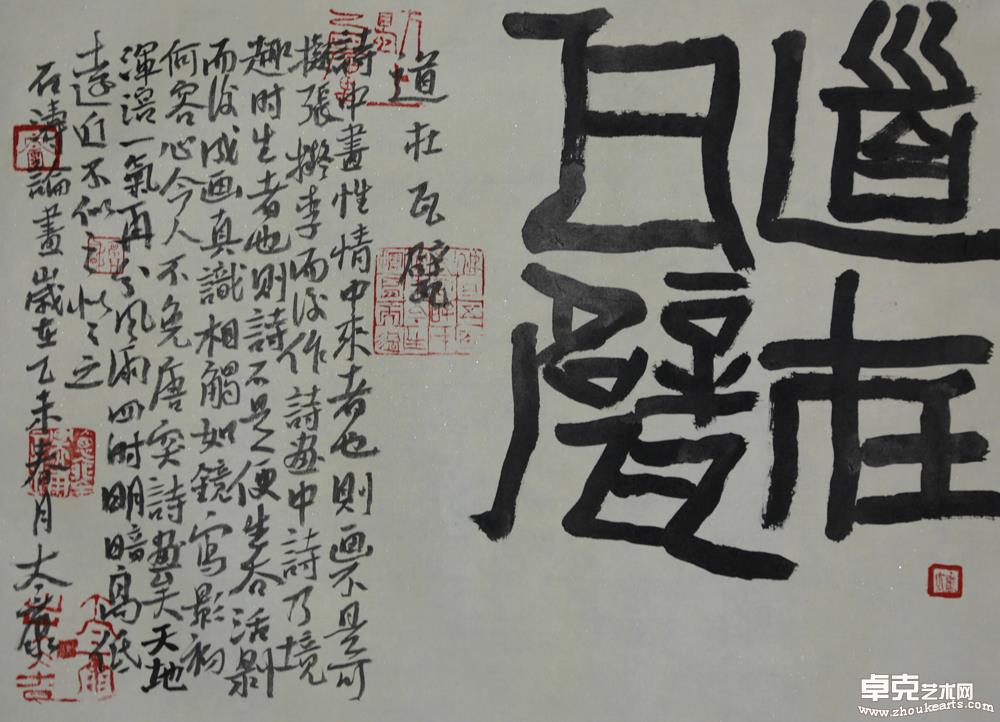 道在
瓦甓
道在瓦甓
詩中畫性情中來者也則画不是可
擬張擬李而後作詩画中詩乃境
趣时生者也則詩不是便生吞活剥
而後成画真識相觸如鏡寫影初
何容心今人不免唐突詩畫矣天地
渾溶一氣再分風雨四时明暗高低
遠近不似之似似之
石濤論畫歲在乙未春月
卓克艺术网
www.zhoukearts.com